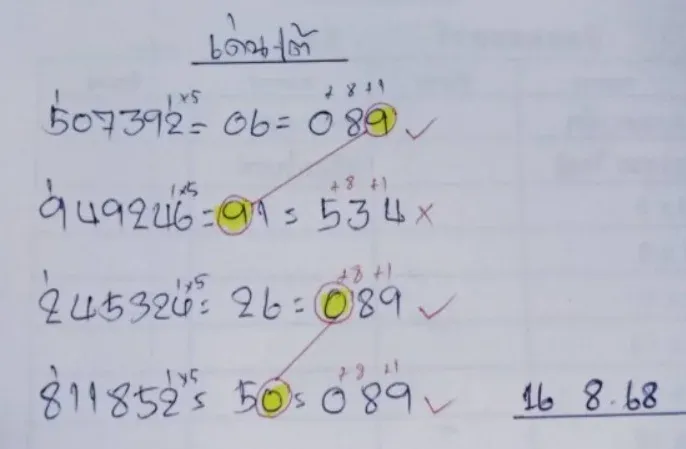 เด่นใต้
1 1×5 + 8 +1
507392 = 06 = 089 ✓
1 1×5 +8 +1
949246 = 91 = 534 ×
1 1×5 +8 +1
245326 = 26 = 089 ✓
1 1×5 +8 +1
811852 = 50 = 089 ✓
16 8.68